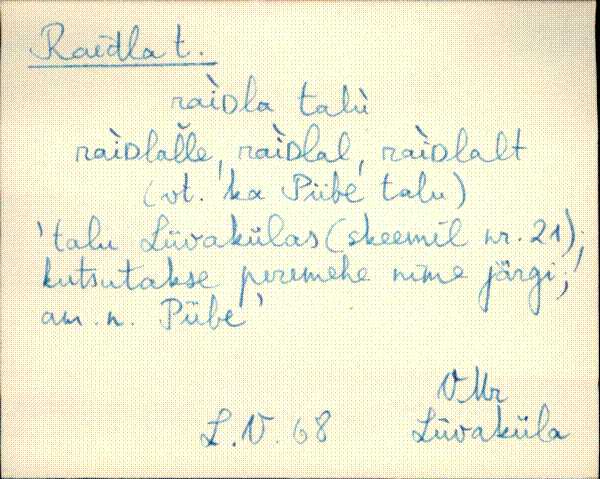 Raidla t.
raìDla talù
raìDlaľľe, raìDlal, raìDlalt
(vt. ka Pübe talu)
'talu Liivakülas (skeemil nr. 21);
kutsutakse peremehe nime järgi;
am. n. Pübe'
V Mr
L.V. 68 Liivaküla